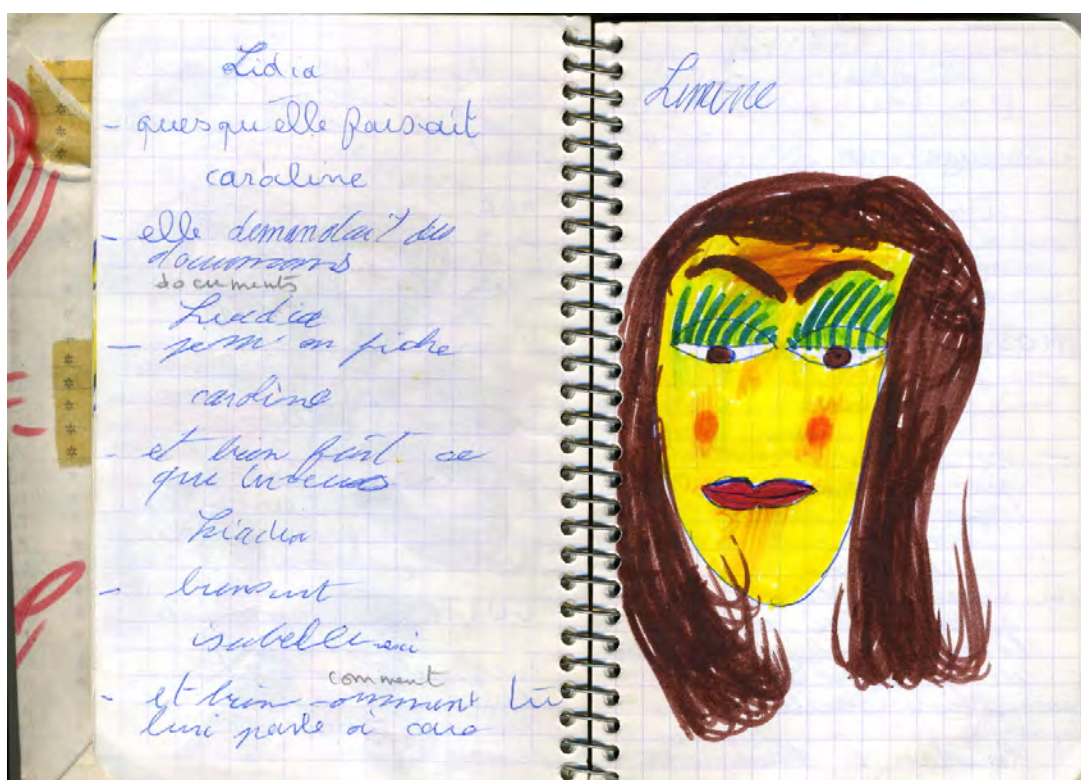 Lidia
- quesqu'elle faisait
caroline
- elle demandait des
documans
documents
Liadia
- jem'en fiche
caroline
- et bien fait ce
que tu veus
Liadia
- biensut
isabelle
comment
- et bien comment tu
lui parle à caro
Limine